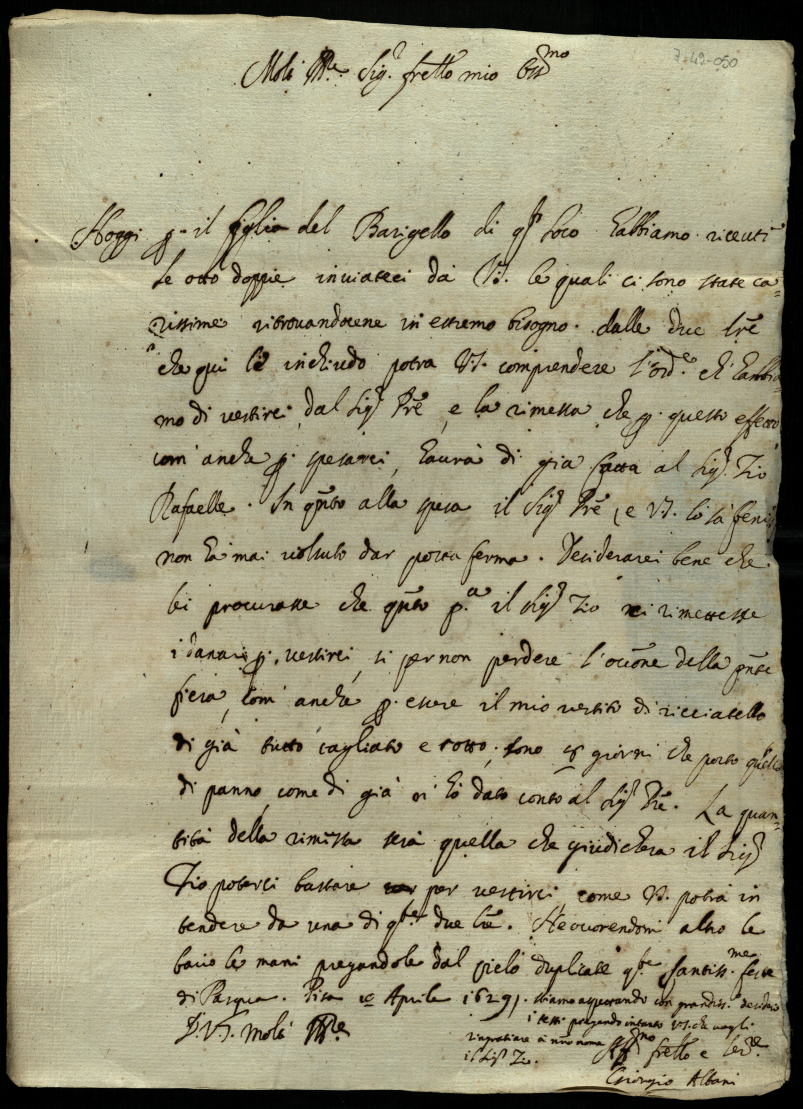 7-42-050
Molt' Ill.re Sig.r fretto mio oss.mo
Hoggi p. il figlio del Barigello di q.sto loco habbiamo riceuti
le otto doppie inviateci da V.S. le quali ci sono state ca-
rissime ritrovandocene in estremo bisogno. dalle due lre
che qui le inchiudo potra V.S. comprendere l'ord.e ch'habbia-
mo di vestirci dal Sig.r Pre, e la rimessa che p. questo effetto
com' anche p. spesarci, haurà di già fatta al Sig.r Zio
Rafaelle. In qnto alla spesa il Sig.r Pre, e V.S. lo sà
non hà mai voluto dar posta ferma. Desiderarei bene che
lei procurasse che qnto p.a il Sig.r Zio ci rimettesse
i danari p. vestirci, si per non perdere l'ocone della pnte
fiera, com' anche p. essere il mio vestito di ricciatello
di già tutto tagliato e rotto, sono giorni che porto quello
di panno, come di già n' hò dato conto al Sig.r Pre. La quan-
tità della rimessa serà quella che giudicherà il Sig.r
Zio poterci bastare per vestirci, come V.S. potrà in
tendere da una di q.te due lre. Ne ocorendomi altro le
bacio le mani pregandole dal cielo duplicate q.te santiss.me feste
di Pasqua. Pisa Aprile 1629. stiamo aspettando con grandiss.o desiderio
i testi pregando intanto V.S. che vogli
ringratiare à nro nome
il Sig.r Zio.
D. V.S. Molt' Ill.re
Aff.mo fretto e ser.re
Giorgio Albani